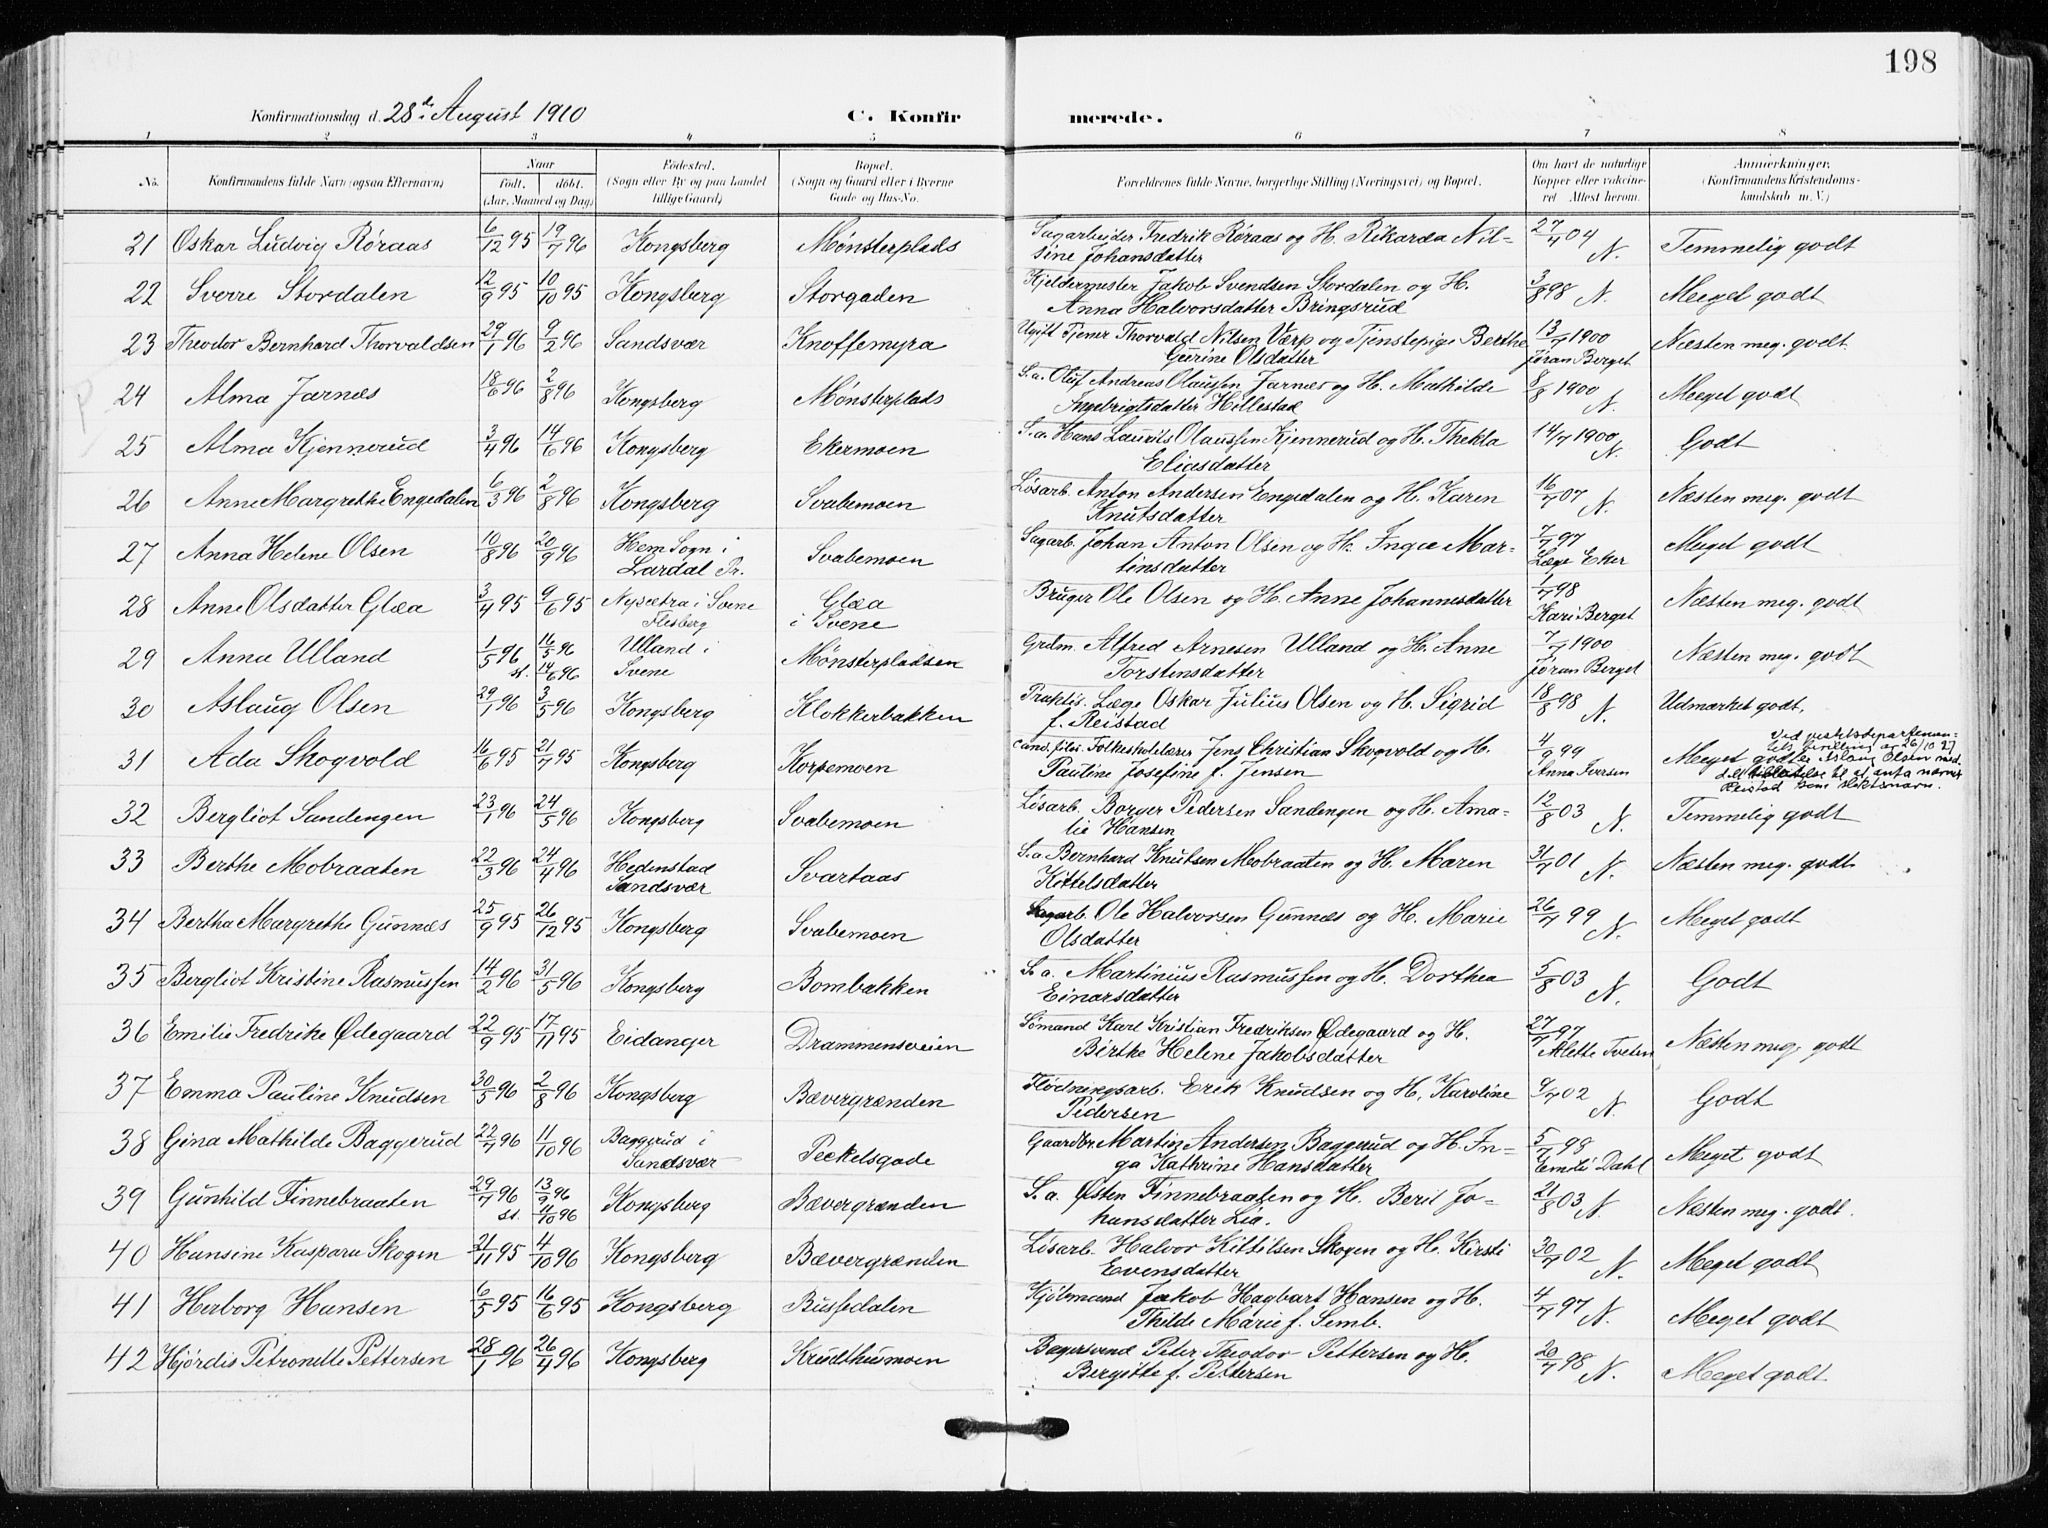 198
Konfirmationsdag d. 28de August 1910 C. Konfirmerede.
1 2 3 4 5 6 7 8
No. Konfirmandens fulde Navn (ogsaa Efternavn) Naar født. døbt. (Aar, Maaned og Dag) Fødested. (Sogn eller By og paa Landet tillige Gaard) Bopæl. (Sogn og Gaard eller i Byerne Gade og Hus-No. Forældrenes fulde Navne, borgerlige Stilling (Næringsvei) og Bopæl. Om havt de naturlige Kopper eller vaccineret. Attest herom. Anmærkninger. (Konfirmandens Kristendomskundskab m. V.)
21 Oskar Ludvig Røraas 6/12 95 19/7 96 Kongsberg Mønsterplads Sagarbeider Fredrik Røraas og H. Rikarda Nil-
sine Johansdatter 27/7 04 N. Temmelig godt
22 Sverre Stordalen 12/9 95 10/10 95 Kongsberg Storgaden Kjeldermester Jakob Svendsen Stordalen og H.
Anna Halvorsdatter Bringsrud 3/8 98 N. Meget godt
23 Theodor Bernhard Thorvaldsen 29/1 96 9/2 96 Sandsvær Knoffemyra Ugift Tjener Thorvald NilsenVærp og Tjenstepige Berthe
Gurine Olsdatter 13/7 1900 Jøran Berget Næsten meg. godt
24 Alma Jarnæs 18/6 96 2/8 96 Kongsberg Mønsterplads S.a. Oluf Andreas Olaussen Jarnæs og H. Mathilde
Ingebrigtsdatter Hillestad 8/8 1900 N. Meget godt
25 Alma Kjennerud 3/4 96 14/6 96 Kongsberg Ekermoen S.a. Hans Laurits Olaussen Kjennerud og H. Thekla
Eliasdatter 14/7 1900 N. Godt
26 Anne Margrethe Engedalen 6/3 96 2/8 96 Kongsberg Svabemoen Løsarb. Anton Andersen Engedalen og H. Karen
Knutsdatter 16/7 07 N. Næsten meg. godt
27 Anna Helene Olsen 10/8 96 20/9 96 Hem Sogn i
Lardal Pr. Svabemoen Sagarb. Johan Anton Olsen og H. Inga Mar-
tinsdatter 7/7 97 Læge Eker Meget godt
28 Anne Olsdatter Glæa 3/4 95 9/6 95 Nysætra i Svene
Flesberg Glæa
i Svene Bruger Ole Olsen og H. Anne Johannesdatter 1/7 98 Kari Berget Næsten meg. godt
29 Anna Ulland 1/5 96 st. 16/5 96 14/6 96 Ulland i
Svene Mønsterpladsen Grdm. Alfred Arnesen Ulland og H. Anne
Torstensdatter 7/7 1900 Jøran Berget Næsten meg. godt
30 Aslaug Olsen 29/1 96 3/5 96 Kongsberg Klokkerbakken Praktis. Læge Oskar Julius Olsen og H. Sigrid
f. Reistad 18/8 98 N. Udmærket godt.
Ved justitsdepartemen-
tets bevilling av 26/10 27
er Aslaug Olsen med-
delt tilladelse til at anta navnet
Reistad som slektsnavn.
31 Ada Skogvold 16/6 95 21/7 95 Kongsberg Korpemoen Cand. filos. Folkeskolelærer Jens Christian Skogvold og H.
Pauline Josefine f. Jensen 4/9 99 Anne Iversen Meget godt
32 Bergliot Sandengen 23/1 96 24/5 96 Kongsberg Svabemoen Løsarb. Borger Pedersen Sandengen og H. Ama-
lie Hansen 12/8 03 N. Temmelig godt
33 Berthe Mobraaten 22/3 96 24/4 96 Hedenstad
Sandsvær Svartaas S.a Bernhard Knutsen Mobraaten og H. Maren
Kittelsdatter 31/7 01 N. Næsten meg. godt
34 Bertha Margrethe Gunnæs 25/9 95 26/12 95 Kongsberg Svabemoen Sagarb. Ole Halvorsen Gunnæs og H. Marie
Olsdatter 26/7 99 N. Meget godt
35 Bergliot Kristine Rasmussen 14/2 96 31/5 96 Kongsberg Bombakken S. a. Martinius Rasmussen og H. Dorthea
Einarsdatter 5/8 03 N. Godt
36 Emilie Fredrike Ødegaard 22/9 95 17/11 95 Eidanger Drammensveien Sømand Karl Kristian Fredriksen Ødegaard og H.
Birthe Helene Jakobsdatter 27/7 97 Alette Tveten Næsten meg. godt
37 Emma Pauline Knudsen 30/5 96 2/8 96 Kongsberg Bævergrænden Flødningsarb. Erik Knudsen og H. Karoline
Pedersen 9/7 02 N. Godt
38 Gina Mathilde Baggerud 22/7 96 11/10 96 Baggerud i
Sandsvær Peckelsgade Gaardbr. Martin Andersen Baggerud og H. In-
ga Kathrine Hansdatter 5/7 98 Emili Dahl Meget godt
39 Gunhild Finnebraaten 29/7 96 st. 13/9 96 11/10 96 Kongsberg Bævergrænden S. a. Østen Finnebraaten og H. Berit Jo-
hansdatter Lia. 21/8 03 N. Næsten meg. godt.
40 Hansine Kaspara Skogen 21/11 95 4/10 96 Kongsberg Bævergrænden Løsarb. Halvor Kittilsen Skogen og H. Kirsti
Evensdatter 30/7 02 N. Meget godt
41 Herborg Hansen 6/5 95 16/6 95 Kongsberg Bussedalen Kjøbmand Jakob Hagbart Hansen og H.
Thilde Marie f. Semb. 4/7 97 N. Meget godt
42 Hjørdis Petronelle Pettersen 28/1 96 26/4 96 Kongsberg Krudthusmoen Bagersvend Peter Theodor Pettersen og H.
Bergitte f. Pettersen 20/7 98 N. Meget godt